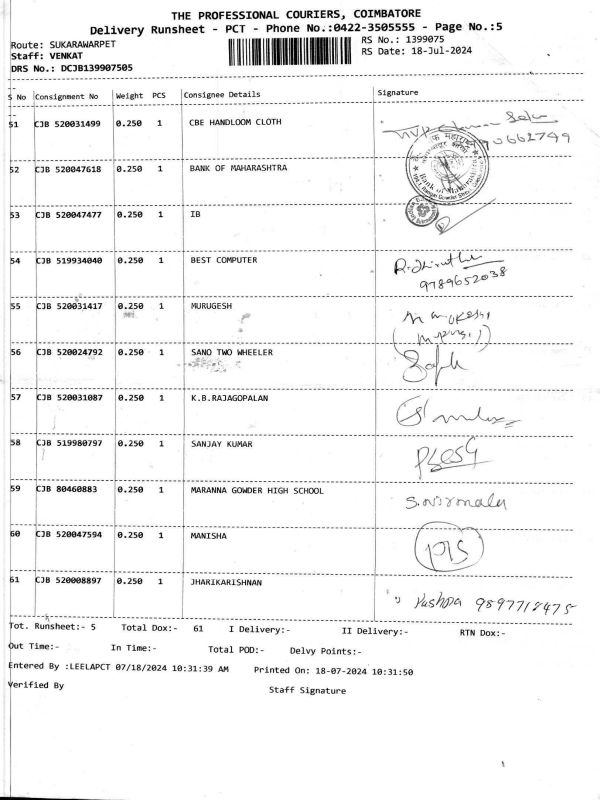 THE PROFESSIONAL COURIERS, COIMBATORE
Delivery Runsheet - PCT - Phone No.:0422-3505555 - Page No.:5
Route: SUKARAWARPET
RS No.: 1399075
Staff: VENKAT
RS Date: 18-Jul-2024
DRS No.: DCJB139907505
S No Consignment No Weight PCS Consignee Details Signature
51 CJB 520031499 0.250 1 CBE HANDLOOM CLOTH
52 CJB 520047618 0.250 1 BANK OF MAHARASHTRA
Bank of Maharashtra
53 CJB 520047477 0.250 1 IB
54 CJB 519934040 0.250 1 BEST COMPUTER
9789652038
55 CJB 520031417 0.250 1 MURUGESH
56 CJB 520024792 0.250 1 SANO TWO WHEELER
57 CJB 520031087 0.250 1 K.B.RAJAGOPALAN
58 CJB 519980797 0.250 1 SANJAY KUMAR
59 CJB 80460883 0.250 1 MARANNA GOWDER HIGH SCHOOL S.Nirmala
60 CJB 520047594 0.250 1 MANISHA
61 CJB 520008897 0.250 1 JHARIKARISHNAN
Pushpa 9897718475
Tot. Runsheet:- 5 Total Dox:- 61 I Delivery:- II Delivery:- RTN Dox:-
Out Time:- In Time:- Total POD:- Delvy Points:-
Entered By :LEELAPCT 07/18/2024 10:31:39 AM Printed On: 18-07-2024 10:31:50
Verified By Staff Signature